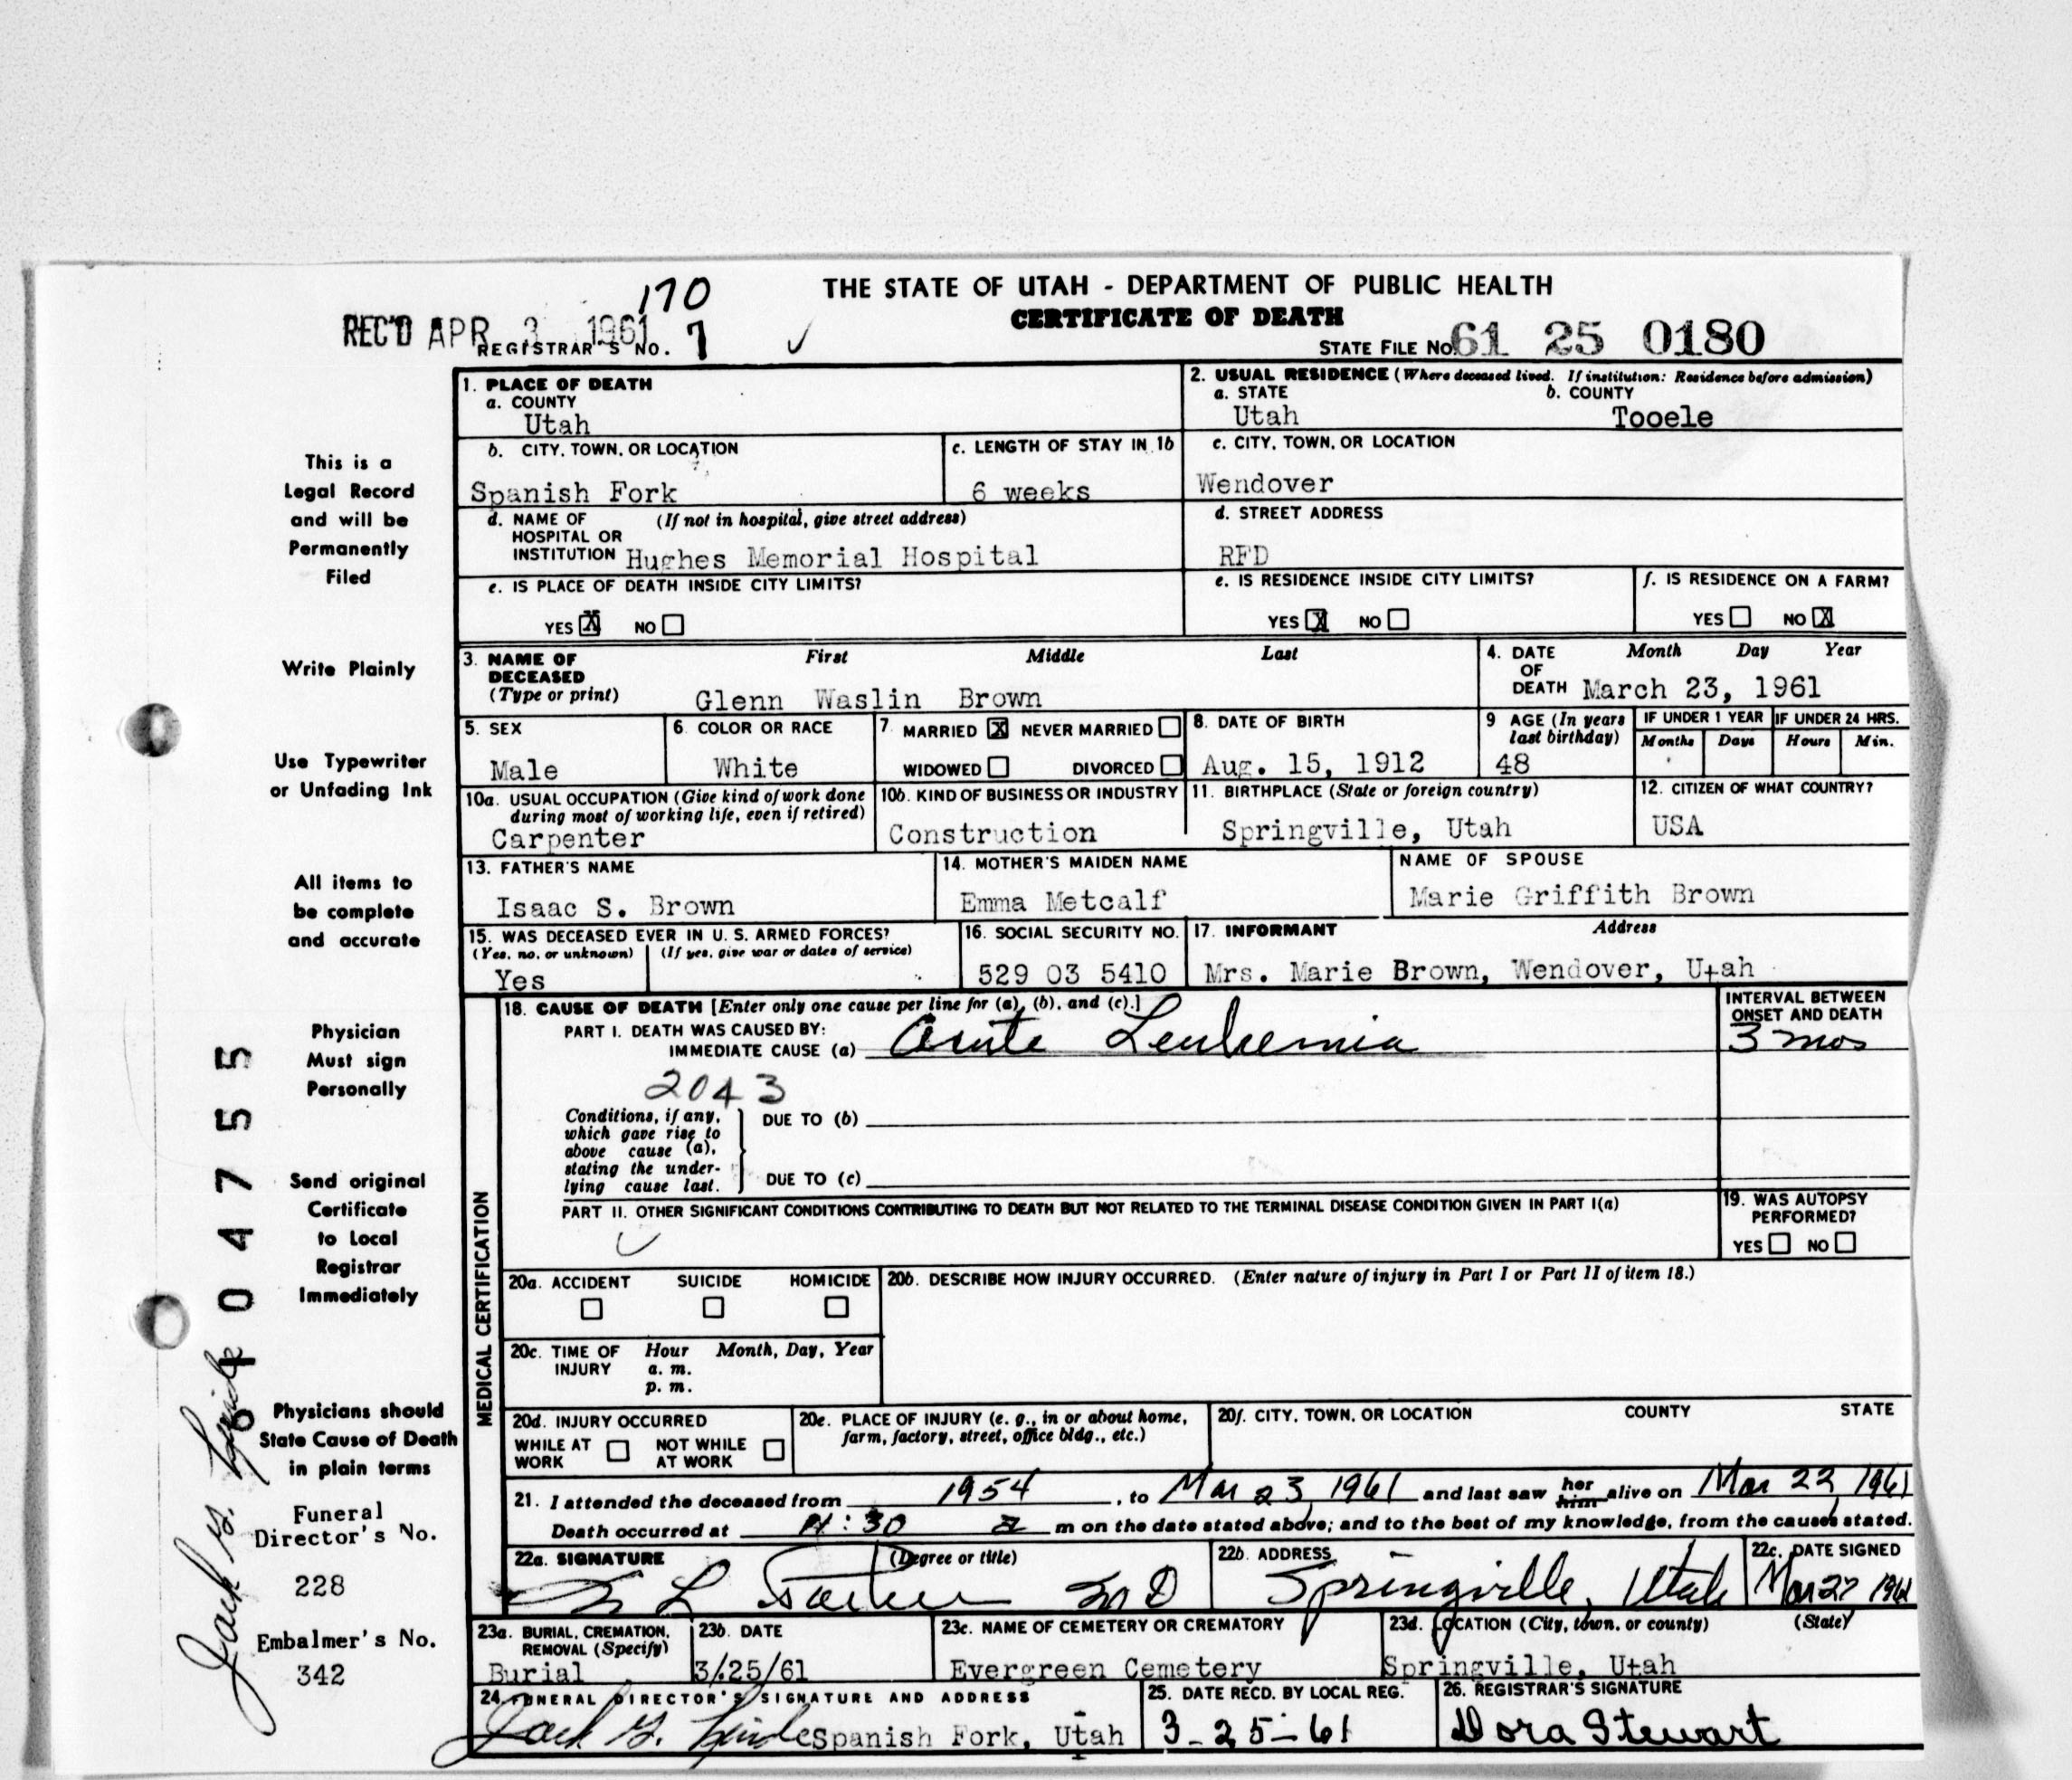 170
THE STATE OF UTAH - DEPARTMENT OF PUBLIC HEALTH
CERTIFICATE OF DEATH
REC'D APR 3 1961
REGISTRAR'S NO. 7
STATE FILE NO. 61 25 0180
1. PLACE OF DEATH
a. COUNTY
Utah
2. USUAL RESIDENCE (Where deceased lived. If institution: Residence before admission)
a. STATE b. COUNTY
Utah Tooele
b. CITY, TOWN, OR LOCATION
Spanish Fork
c. LENGTH OF STAY IN 1b
6 weeks
c. CITY, TOWN, OR LOCATION
Wendover
d. NAME OF (If not in hospital, give street address)
HOSPITAL OR
INSTITUTION Hughes Memorial Hospital
d. STREET ADDRESS
RFD
e. IS PLACE OF DEATH INSIDE CITY LIMITS?
YES X NO
e. IS RESIDENCE INSIDE CITY LIMITS?
YES X NO
f. IS RESIDENCE ON A FARM?
YES NO X
3. NAME OF DECEASED (Type or print)
First Middle Last
Glenn Waslin Brown
4. DATE OF DEATH Month Day Year
March 23, 1961
5. SEX
Male
6. COLOR OR RACE
White
7. MARRIED X NEVER MARRIED
WIDOWED DIVORCED
8. DATE OF BIRTH
Aug. 15, 1912
9 AGE (In years last birthday)
48
IF UNDER 1 YEAR
Months Days
IF UNDER 24 HRS.
Hours Min.
10a. USUAL OCCUPATION (Give kind of work done
during most of working life, even if retired)
Carpenter
10b. KIND OF BUSINESS OR INDUSTRY
Construction
11. BIRTHPLACE (State or foreign country)
Springville, Utah
12. CITIZEN OF WHAT COUNTRY?
USA
13. FATHER'S NAME
Isaac S. Brown
14. MOTHER'S MAIDEN NAME
Emma Metcalf
NAME OF SPOUSE
Marie Griffith Brown
15. WAS DECEASED EVER IN U. S. ARMED FORCES?
(Yes, no, or unknown) (If yes, give war or dates of service)
Yes
16. SOCIAL SECURITY NO.
529 03 5410
17. INFORMANT Address
Mrs. Marie Brown, Wendover, Utah
MEDICAL CERTIFICATION
18. CAUSE OF DEATH [Enter only one cause per line for (a), (b), and (c).]
PART I. DEATH WAS CAUSED BY:
IMMEDIATE CAUSE (a) Acute Leukemia
INTERVAL BETWEEN
ONSET AND DEATH
3 mos
2043
Conditions, if any,
which gave rise to
above cause (a),
stating the under-
lying cause last.
DUE TO (b)
DUE TO (c)
PART II. OTHER SIGNIFICANT CONDITIONS CONTRIBUTING TO DEATH BUT NOT RELATED TO THE TERMINAL DISEASE CONDITION GIVEN IN PART I(a)
19. WAS AUTOPSY
PERFORMED?
YES NO
20a. ACCIDENT SUICIDE HOMICIDE
20b. DESCRIBE HOW INJURY OCCURRED. (Enter nature of injury in Part I or Part II of item 18.)
20c. TIME OF INJURY Hour Month, Day, Year
a. m.
p. m.
20d. INJURY OCCURRED
WHILE AT WORK NOT WHILE AT WORK
20e. PLACE OF INJURY (e. g., in or about home,
farm, factory, street, office bldg., etc.)
20f. CITY, TOWN, OR LOCATION COUNTY STATE
21. I attended the deceased from 1954, to Mar 23, 1961 and last saw her him alive on Mar 22, 1961
Death occurred at 4:30 a m on the date stated above; and to the best of my knowledge, from the causes stated.
22a. SIGNATURE (Degree or title)
L MD
22b. ADDRESS
Springville, Utah
22c. DATE SIGNED
Mar 27 1961
23a. BURIAL, CREMATION,
REMOVAL (Specify)
Burial
23b. DATE
3/25/61
23c. NAME OF CEMETERY OR CREMATORY
Evergreen Cemetery
23d. LOCATION (City, town, or county) (State)
Springville, Utah
24. FUNERAL DIRECTOR'S SIGNATURE AND ADDRESS
Jack Spanish Fork, Utah
25. DATE RECD. BY LOCAL REG.
3-25-61
26. REGISTRAR'S SIGNATURE
Dora Stewart
This is a
Legal Record
and will be
Permanently
Filed
Write Plainly
Use Typewriter
or Unfading Ink
All items to
be complete
and accurate
Physician
Must sign
Personally
Send original
Certificate
to Local
Registrar
Immediately
Physicians should
State Cause of Death
in plain terms
Funeral
Director's No.
228
Embalmer's No.
342
04755
Jack